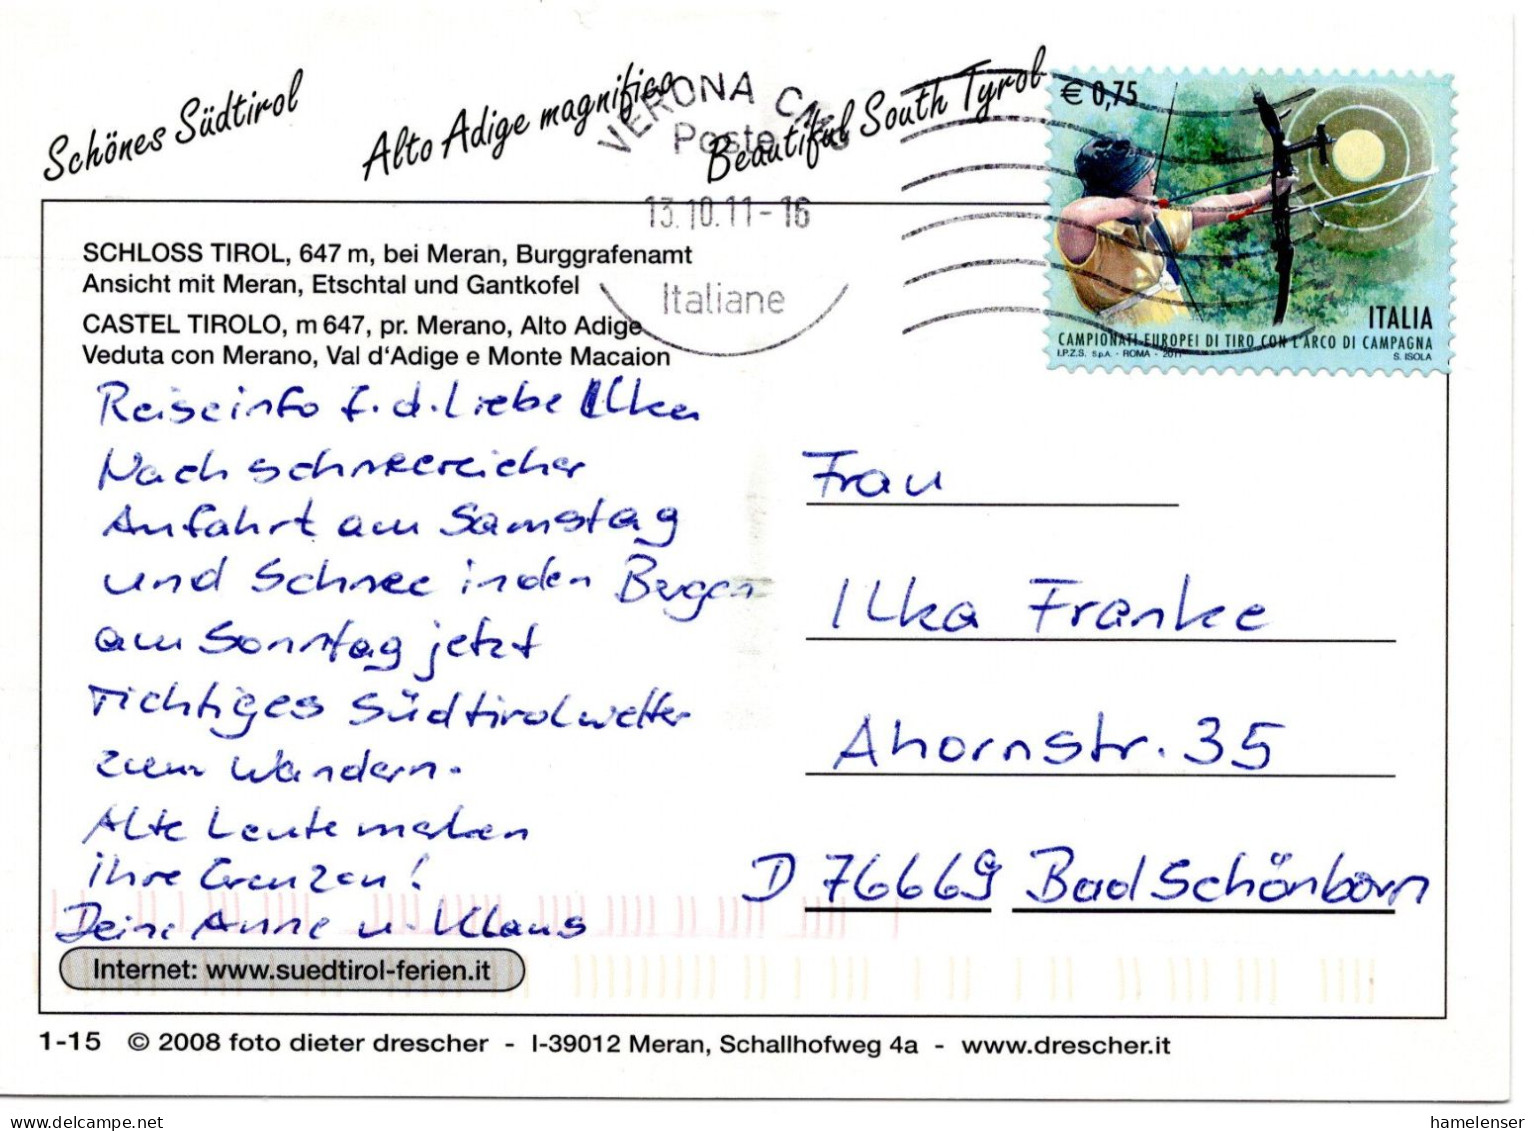 Schönes Südtirol
Alto Adige magnifico
Beautiful South Tyrol
VERONA C.M.P.
Poste
13.10.11-16
Italiane
€ 0,75
ITALIA
CAMPIONATI EUROPEI DI TIRO CON L'ARCO DI CAMPAGNA
I.P.Z.S. S.p.A. - ROMA - 2011
S. ISOLA
SCHLOSS TIROL, 647 m, bei Meran, Burggrafenamt
Ansicht mit Meran, Etschtal und Gantkofel
CASTEL TIROLO, m 647, pr. Merano, Alto Adige
Veduta con Merano, Val d'Adige e Monte Macaion
Reiseinfo f. d. Liebe Ilka
Nach schneereicher
Anfahrt am Samstag
und Schnee in den Bergen
am Sonntag jetzt
richtiges Südtirolwetter
zum Wandern.
Alte Leute merken
ihre Grenzen!
Deine Anne u. Klaus
Frau
Ilka Franke
Ahornstr. 35
D 76669 Bad Schönborn
Internet: www.suedtirol-ferien.it
1-15 © 2008 foto dieter drescher - I-39012 Meran, Schallhofweg 4a - www.drescher.it
delcampe.net
hamelenser